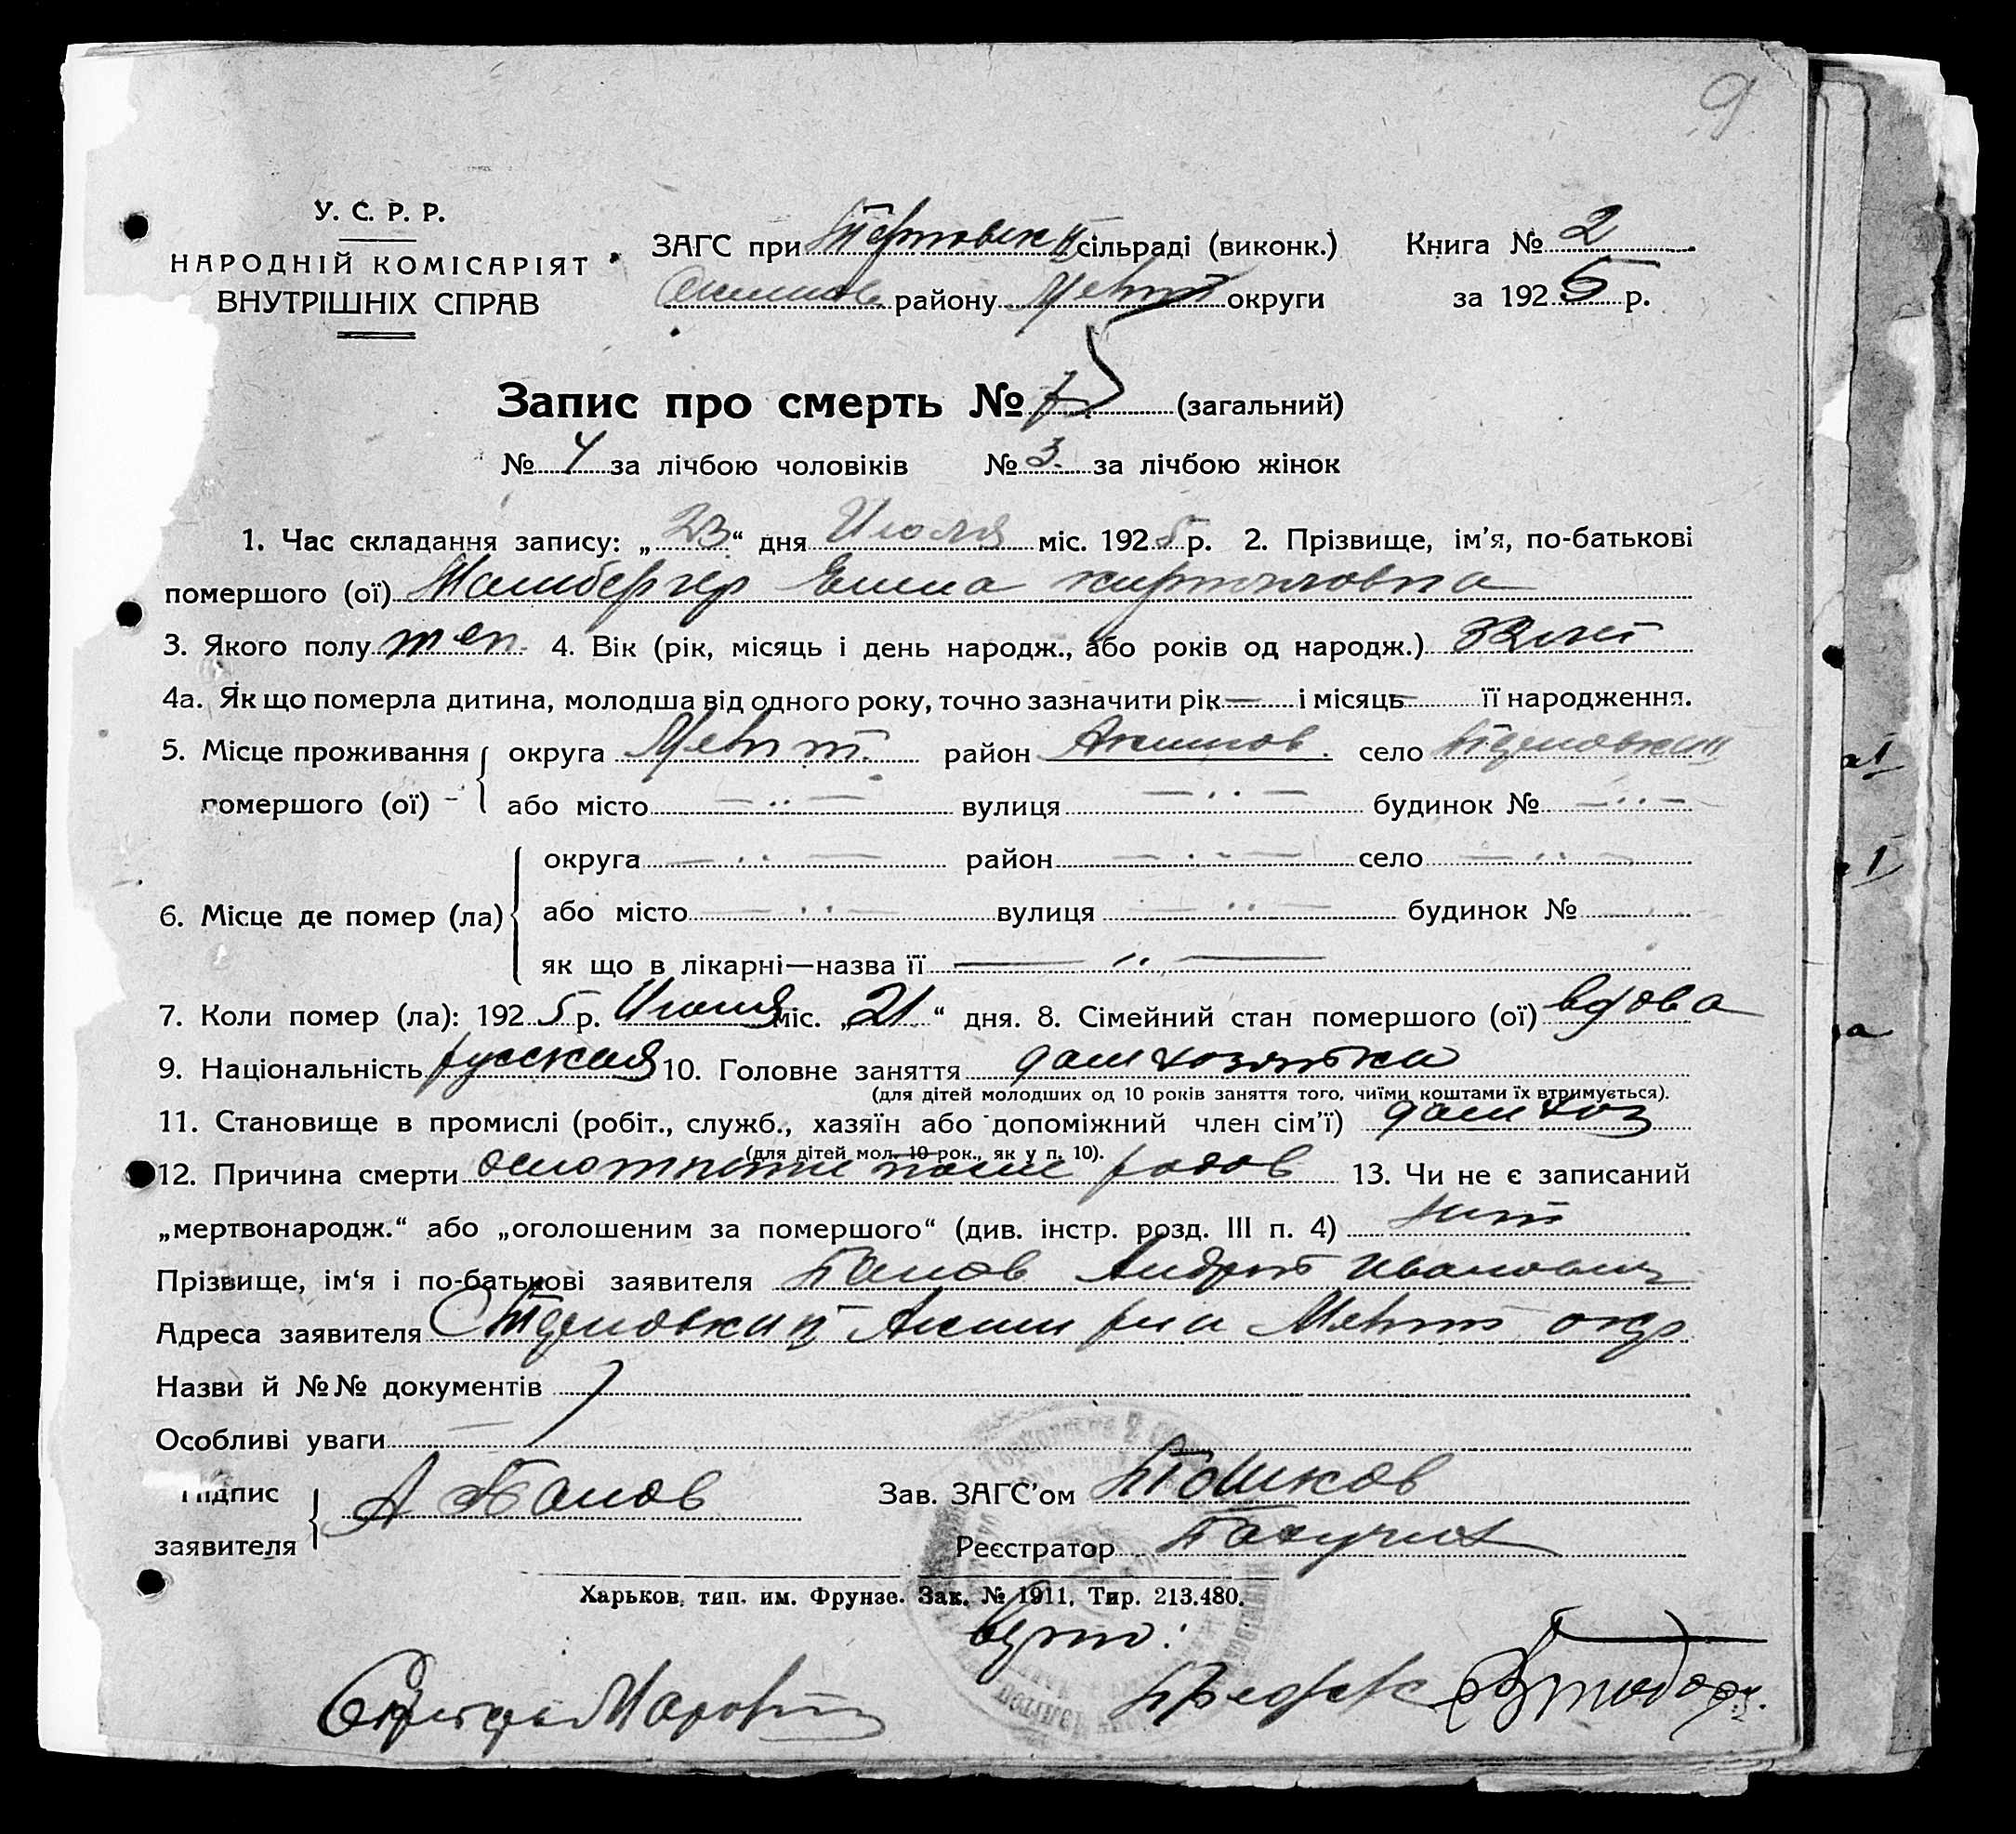 9
У. С. Р. Р.
НАРОДНІЙ КОМІСАРІЯТ
ВНУТРІШНІХ СПРАВ
ЗАГС при сільраді (виконк.)
Книга № 2
району округи
за 1925 р.
Запис про смерть № 7 (загальний)
№ 4 за лічбою чоловіків № 3 за лічбою жінок
1. Час складання запису: „23“ дня Июля міс. 1925 р. 2. Прізвище, ім'я, по-батькові
помершого (ої)
3. Якого полу жен. 4. Вік (рік, місяць і день народж., або років од народж.) 32 лет
4а. Як що померла дитина, молодша від одного року, точно зазначити рік — і місяць — її народження.
5. Місце проживання округа Мелит. район Акимов. село
помершого (ої) або місто — „ — вулиця — „ — будинок № — „ —
округа — „ — район — „ — село — „ —
6. Місце де помер (ла) або місто — „ — вулиця — „ — будинок №
як що в лікарні—назва її — „ —
7. Коли помер (ла): 1925 р. Июля міс. „21“ дня. 8. Сімейний стан помершого (ої) вдова
9. Національність русская 10. Головне заняття дом хозяйка
(для дітей молодших од 10 років заняття того, чиїми коштами їх втримується).
11. Становище в промислі (робіт., служб., хазяїн або допоміжний член сім'ї) дом хоз
(для дітей мол. 10 рок., як у п. 10).
12. Причина смерти после родов 13. Чи не є записаний
„мертвонародж.“ або „оголошеним за помершого“ (див. інстр. розд. III п. 4) нет
Прізвище, ім'я і по-батькові заявителя Панов Андрей Иванович
Адреса заявителя Аким р на Мелит окр
Назви й №№ документів
Особливі уваги
Підпис
заявителя А Панов
Зав. ЗАГС'ом
Реєстратор
Харьков, тип. им. Фрунзе. Зак. № 1911. Тир. 213.480.
Верно: